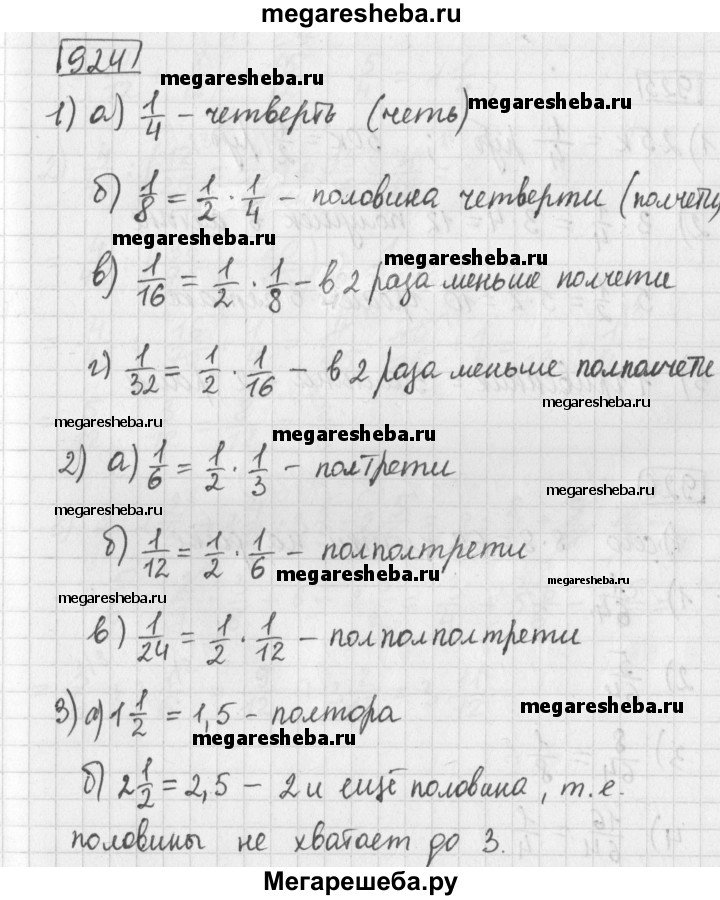 megaresheba.ru
924
megaresheba.ru
1) а) 1/4 - четверть (четь)
megaresheba.ru
б) 1/8 = 1/2 · 1/4 - половина четверти (полчети)
megaresheba.ru
в) 1/16 = 1/2 · 1/8 - в 2 раза меньше полчети
г) 1/32 = 1/2 · 1/16 - в 2 раза меньше полполчети
megaresheba.ru
megaresheba.ru
megaresheba.ru
2) а) 1/6 = 1/2 · 1/3 - полтрети
megaresheba.ru
megaresheba.ru
б) 1/12 = 1/2 · 1/6 - полполтрети
megaresheba.ru
megaresheba.ru
megaresheba.ru
в) 1/24 = 1/2 · 1/12 - полполполтрети
megaresheba.ru
3) а) 1 1/2 = 1,5 - полтора
megaresheba.ru
б) 2 1/2 = 2,5 - 2 и ещё половина, т.е.
половины не хватает до 3.
Мегарешеба.ру